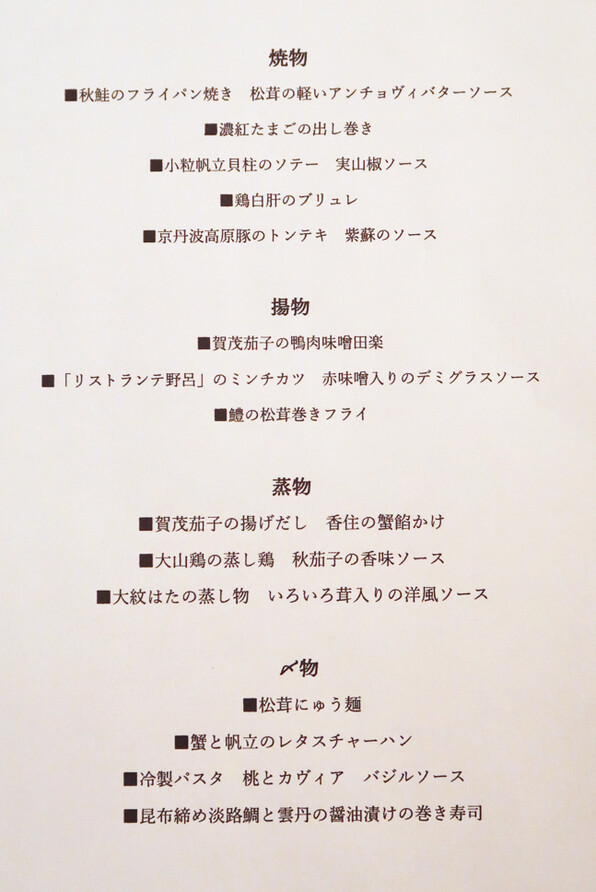 焼物
■秋鮭のフライパン焼き　松茸の軽いアンチョヴィバターソース
■濃紅たまごの出し巻き
■小粒帆立貝柱のソテー　実山椒ソース
■鶏白肝のブリュレ
■京丹波高原豚のトンテキ　紫蘇のソース
揚物
■賀茂茄子の鴨肉味噌田楽
■「リストランテ野呂」のミンチカツ　赤味噌入りのデミグラスソース
■鱧の松茸巻きフライ
蒸物
■賀茂茄子の揚げだし　香住の蟹餡かけ
■大山鶏の蒸し鶏　秋茄子の香味ソース
■大紋はたの蒸し物　いろいろ茸入りの洋風ソース
〆物
■松茸にゅう麺
■蟹と帆立のレタスチャーハン
■冷製パスタ　桃とカヴィア　バジルソース
■昆布締め淡路鯛と雲丹の醤油漬けの巻き寿司